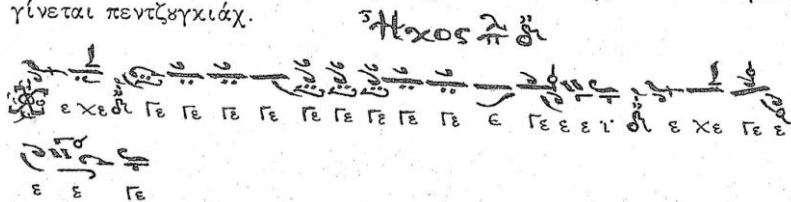 γίνεται πεντζȣγκιάχ.
Ἦχος λ π δι
ε χε δι Γε Γε Γε Γε Γε Γε Γε Γε Γε ε Γε ε ε ι δι ε χε Γε ε
ε ε Γε